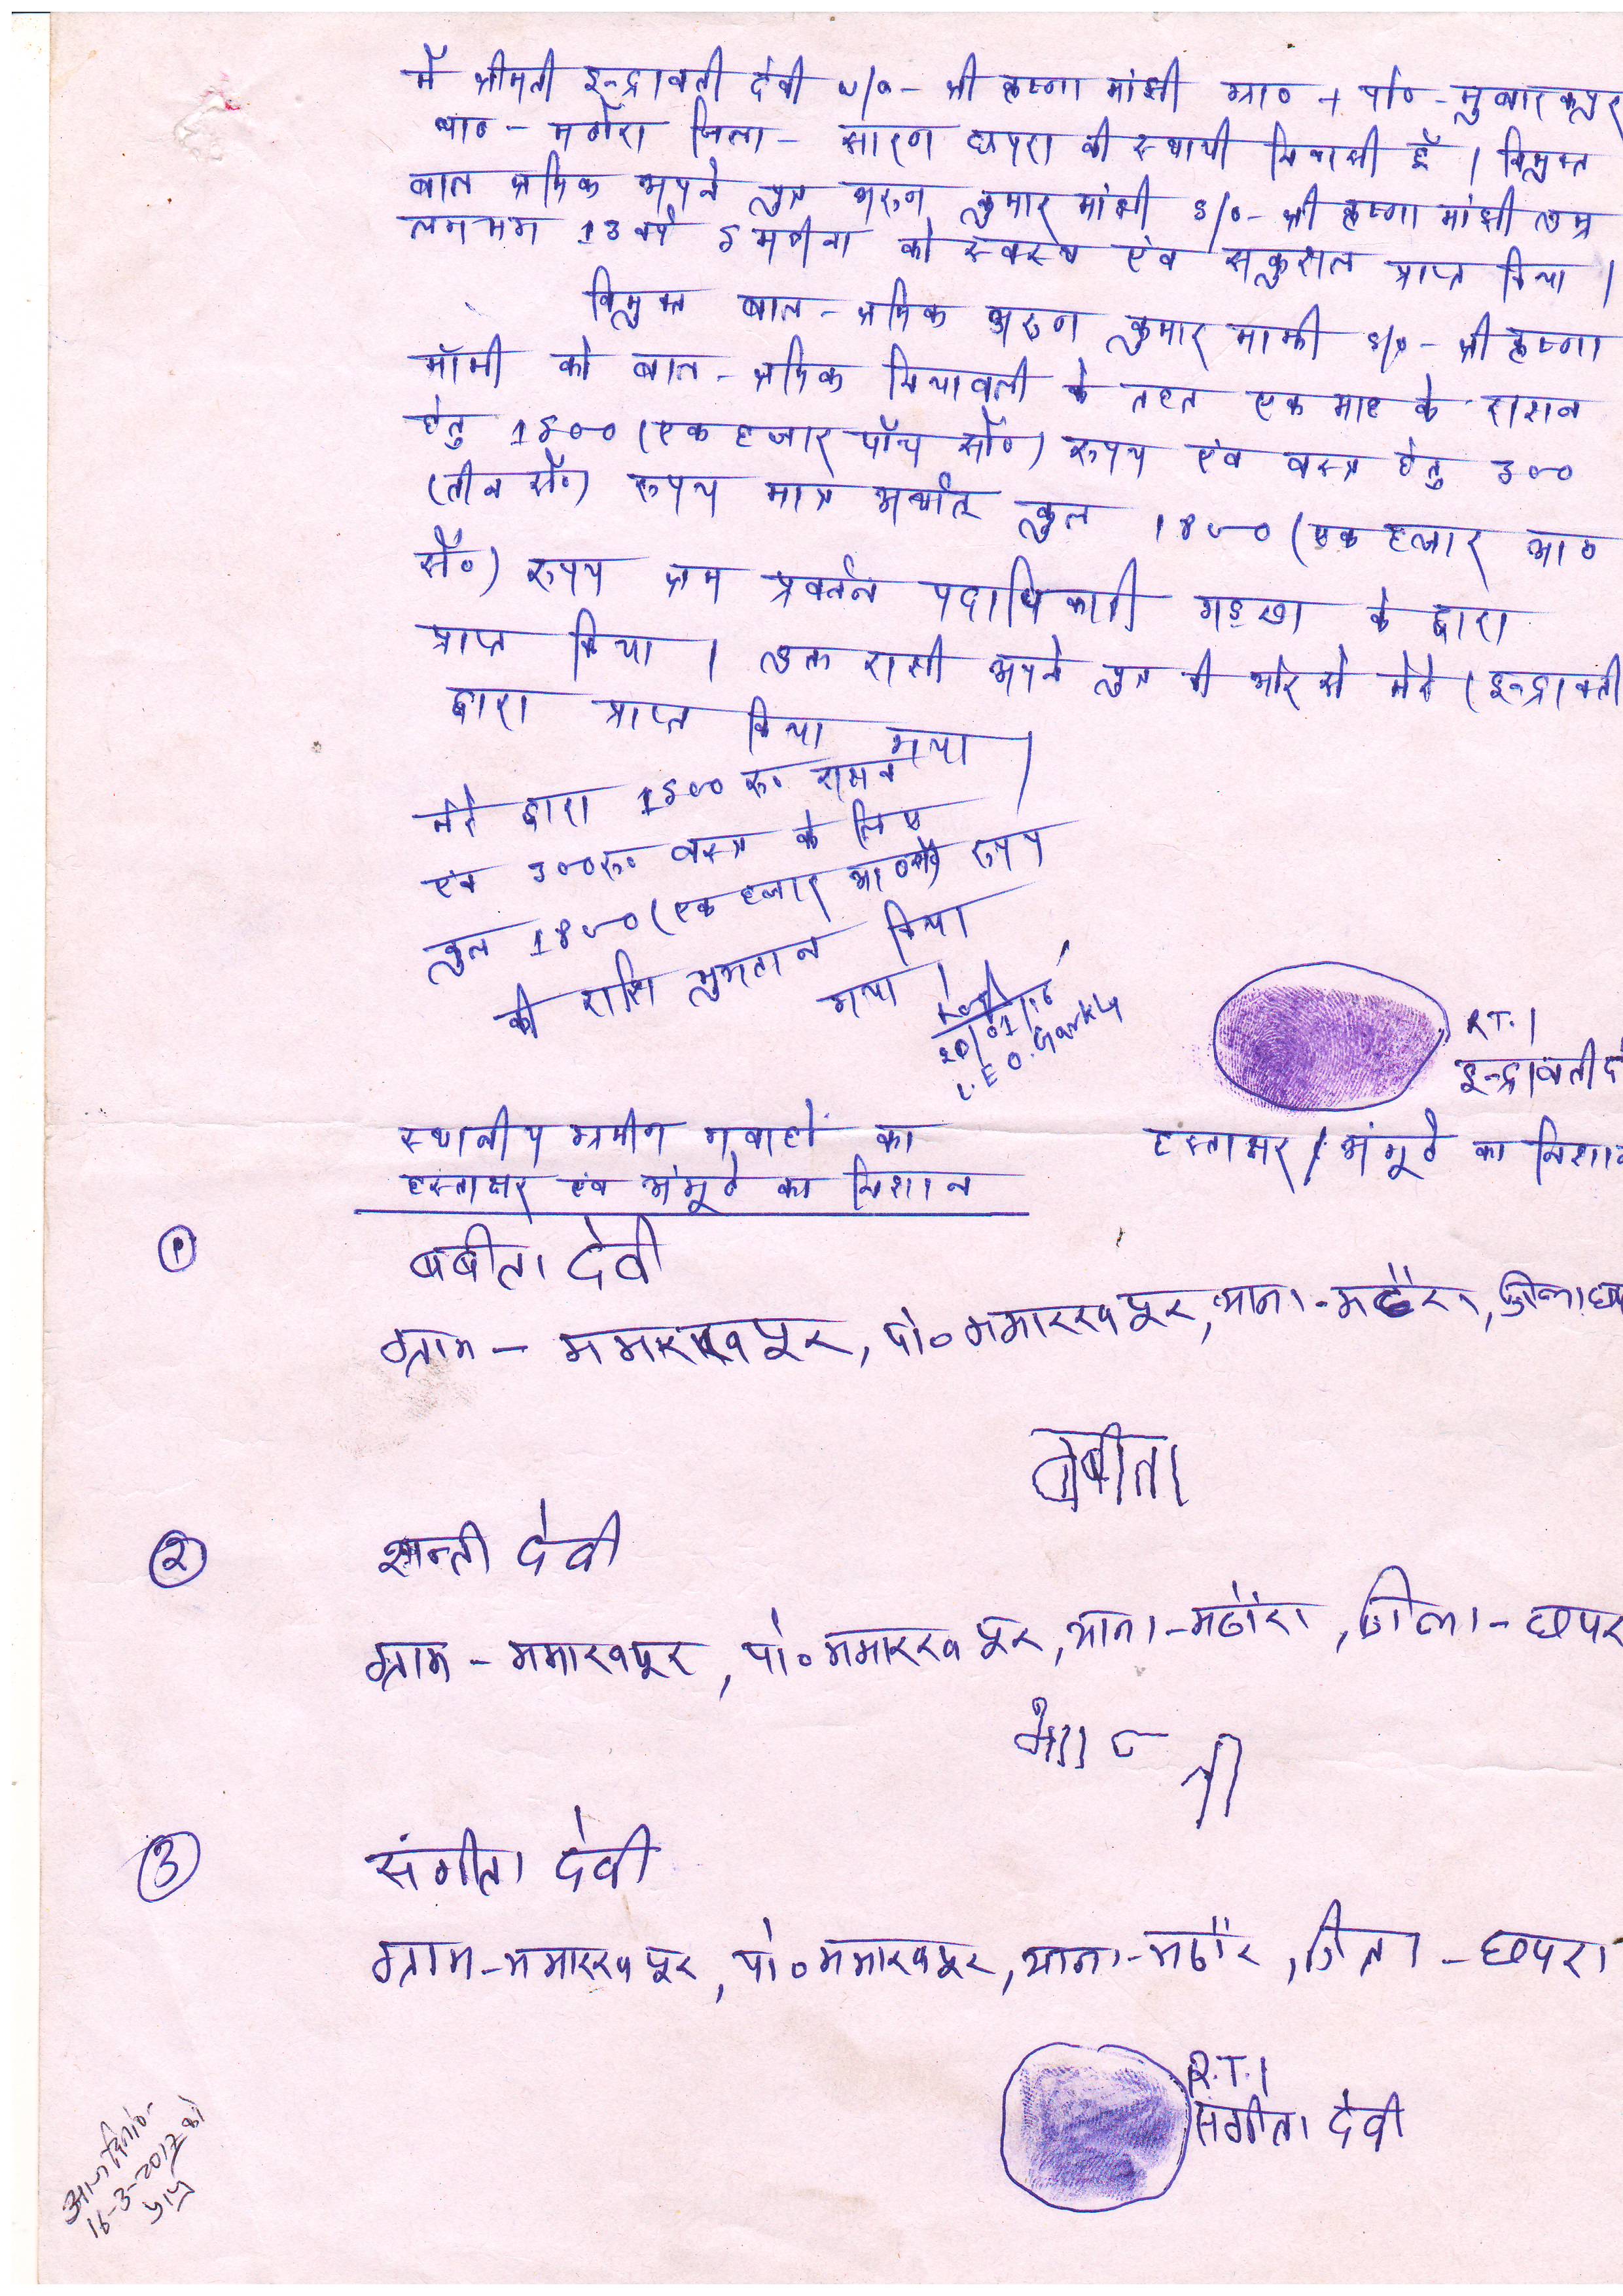 मैं श्रीमती इन्द्रावती देवी w/o - श्री कृष्णा मांझी ग्रा० + पो० - मुबारकपुर
था० - मढौरा जिला - सारण छपरा की स्थायी निवासी हूँ । विमुक्त
बाल श्रमिक अपने पुत्र अरुण कुमार मांझी s/o - श्री कृष्णा मांझी उम्र
लगभग 13 वर्ष 5 महीना को स्वस्थ एंव सकुसल प्राप्त किया ।
विमुक्त बाल - श्रमिक अरुण कुमार माझी s/o - श्री कृष्णा
मॉझी को बाल - श्रमिक नियावली के तहत एक माह के राशन
हेतु 1500 (एक हजार पॉच सौ०) रुपय एंव वस्त्र हेतु 300
(तीन सौ०) रुपय मात्र अर्थात कुल 1800 (एक हजार आठ
सौ०) रुपय श्रम प्रवर्तन पदाधिकारी गड़खा के द्वारा
प्राप्त किया । उक्त राशी अपने पुत्र की ओर से मेरे (इन्द्रावती
द्वारा प्राप्त किया गया ।
मेरे द्वारा 1500 रु० राशन
एंव 300 रु० वस्त्र के लिए
कुल 1800 (एक हजार आठ सौ) रुपय
की राशि भुगतान किया
गया ।
20/01/16
L.E.O. Garkha
R.T.I
इन्द्रावती दे
हस्ताक्षर / अंगूठे का निशान
स्थानीय ग्रमीण गवाहों का
हस्ताक्षर एंव अंगूठे का निशान
① बबीता देवी
ग्राम - ममारखपूर, पो० ममारखपूर, थाना - मढौरा, जिला छप
बबीता
② शान्ती देवी
ग्राम - ममारखपूर, पो० ममारखपूर, थाना - मढौरा, जिला - छपर
③ संगीता देवी
ग्राम - ममारखपूर, पो० ममारखपूर, थाना - मढौर, जिला - छपरा
R.T.I
संगीता देवी
आज दिनांक -
16-3-2017 को
प्राप्त